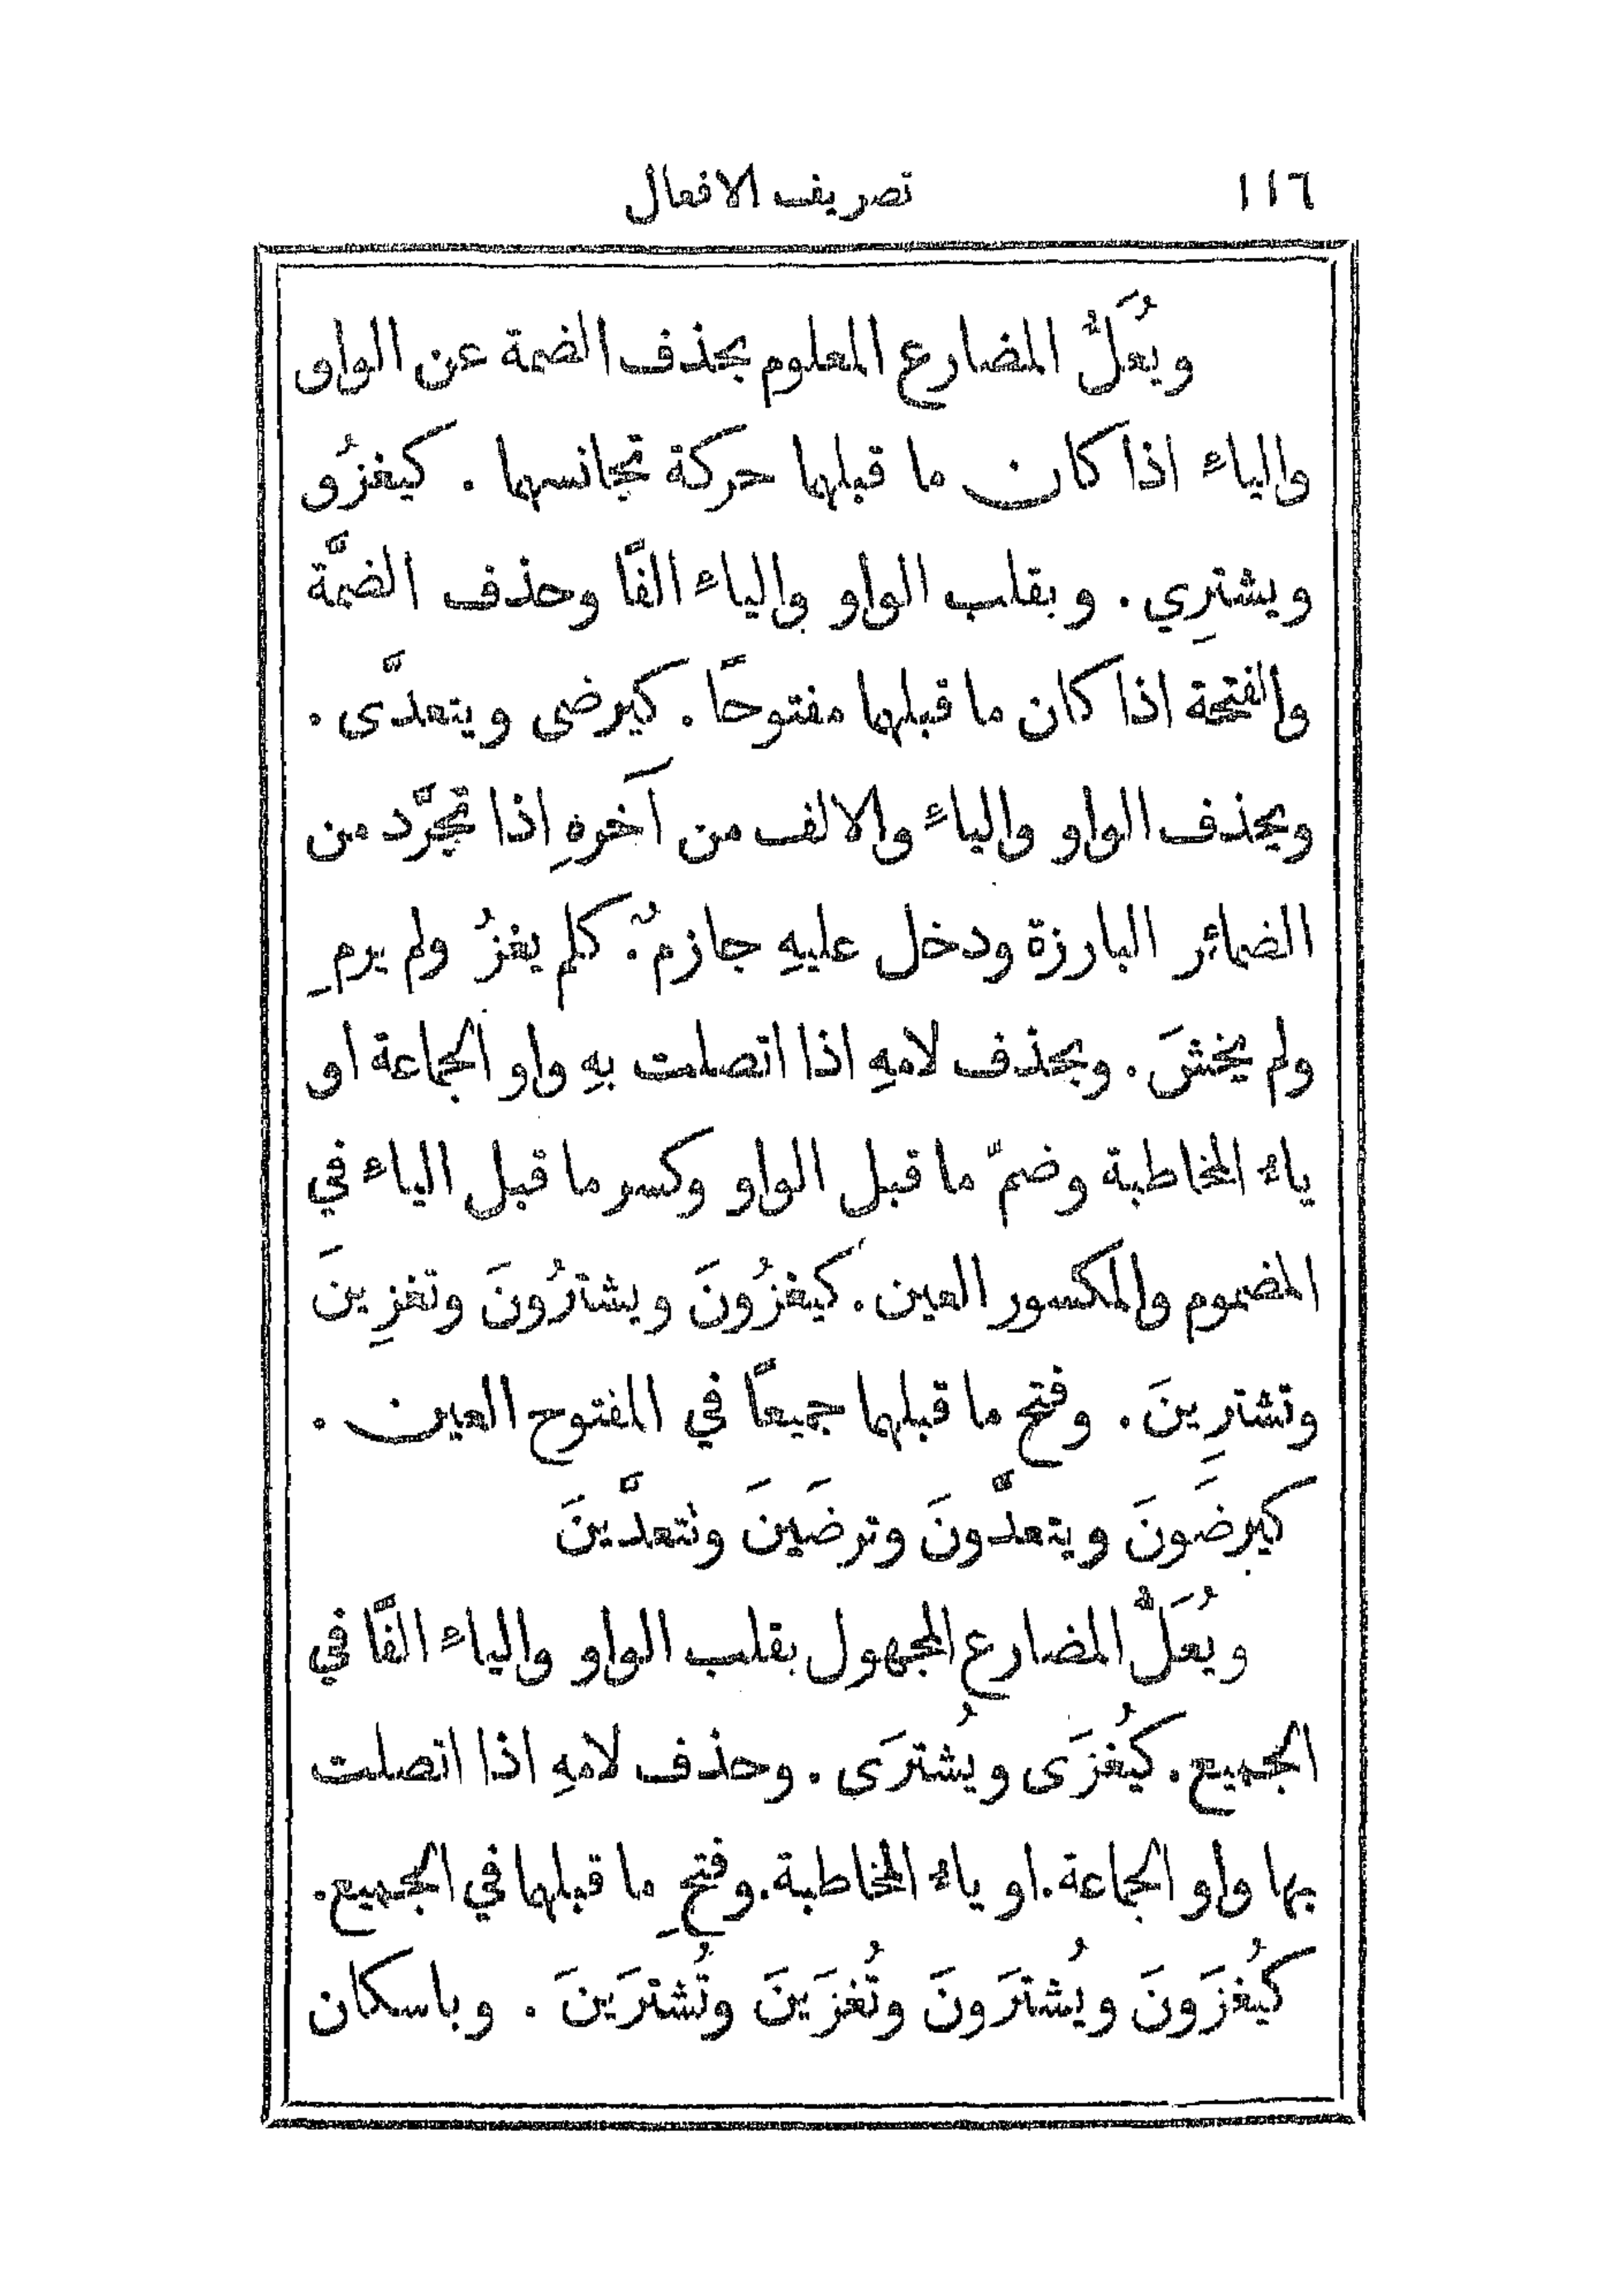 ١١٦ تصريف الافعال
ويُعَلُّ المضارع المعلوم بحذف الضمة عن الواو
والياء اذا كان ما قبلها حركة تجانسهما . كيغزُو
ويشترِي . وبقلب الواو والياء الفًا وحذف الضمَّة
والفتحة اذا كان ما قبلهما مفتوحًا . كيرضى ويتعدَّى .
وبحذف الواو والياء والالف من آخرهِ اذا تجرَّد من
الضمائر البارزة ودخل عليهِ جازمٌ . كلم يغزُ ولم يرمِ
ولم يخشَ . وبحذف لامهِ اذا اتصلت بهِ واو الجماعة او
ياء المخاطبة وضمّ ما قبل الواو وكسر ما قبل الياء في
المضموم والمكسور العين . كيغزُونَ ويشترُونَ وتغزِينَ
وتشترِينَ . وفتح ما قبلهما جميعًا في المفتوح العين .
كيرضَونَ ويتعدَّونَ وترضَينَ وتتعدَّينَ
ويُعَلُّ المضارع المجهول بقلب الواو والياء الفًا في
الجميع . كيُغزَى ويُشترَى . وحذف لامهِ اذا اتصلت
بها واو الجماعة . او ياء المخاطبة . وفتحِ ما قبلها في الجميع .
كيُغزَونَ ويُشترَونَ وتُغزَينَ وتُشترَينَ . وباسكان